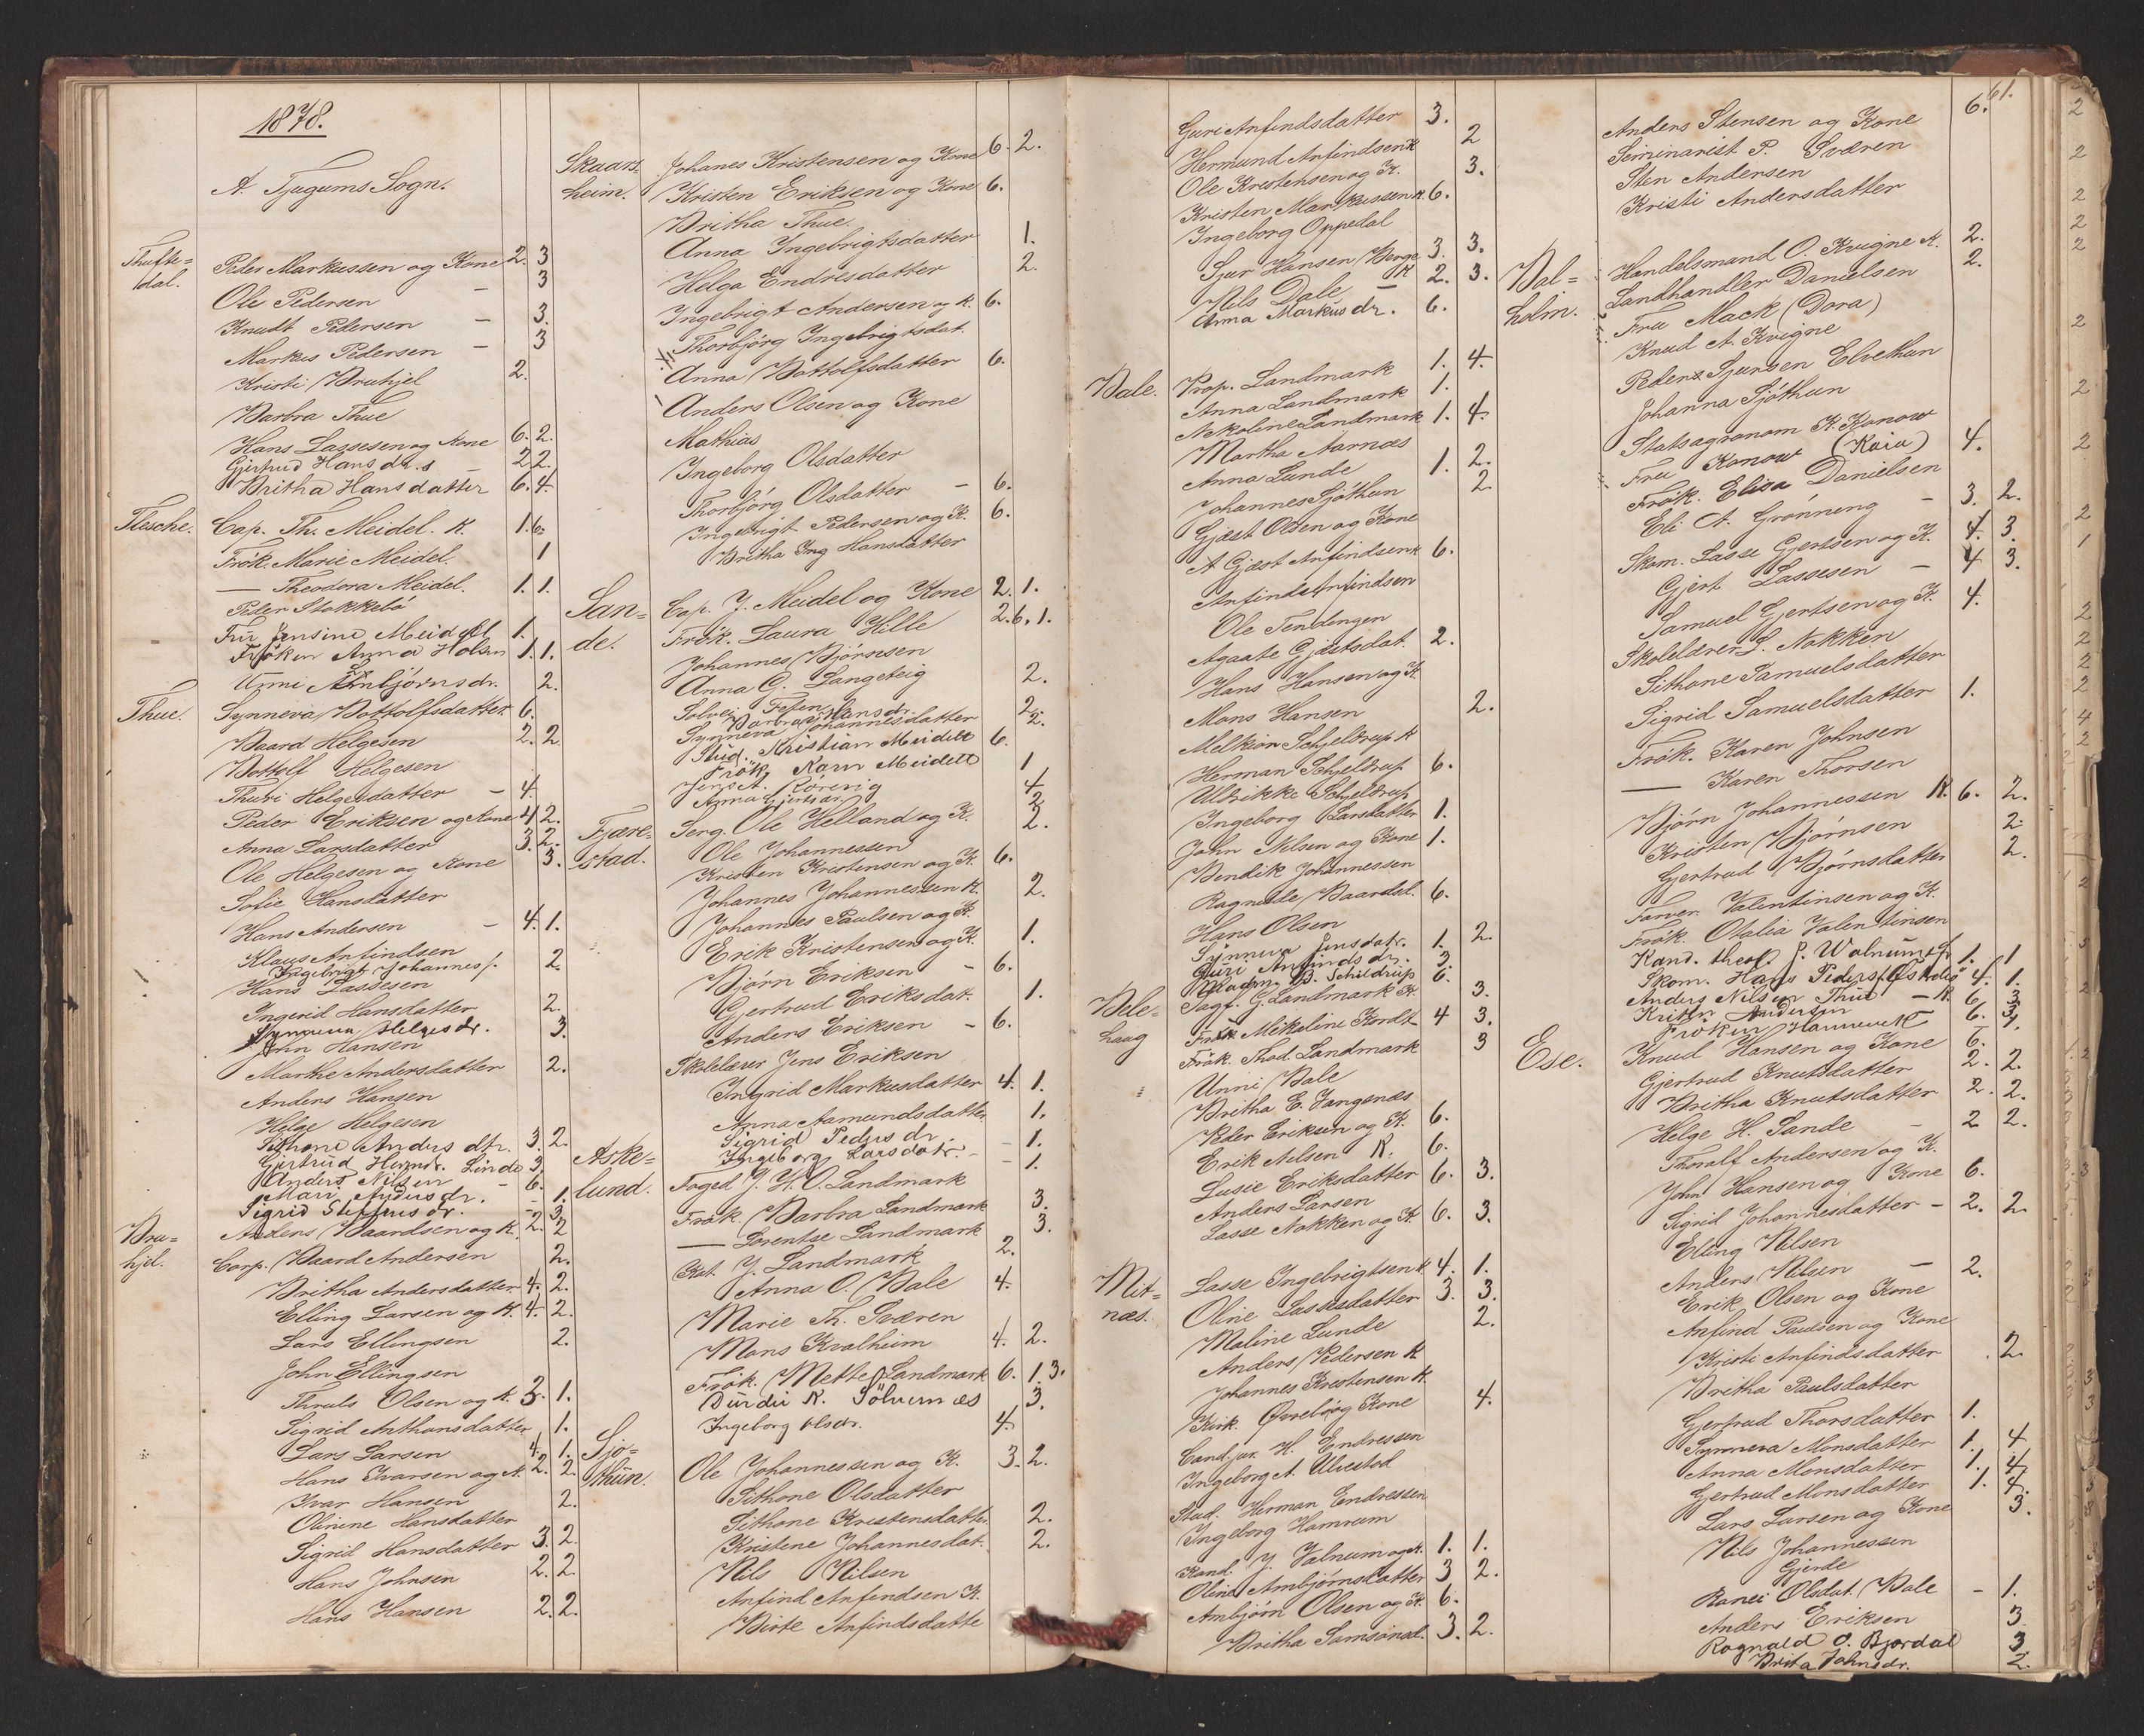 1878.
A. Tjugums Sogn.
Thufte=
dal.
Peder Markussen og Kone 2. 3
Ole Pedersen — 3
Knudt Pedersen — 3.
Markus Pedersen — 3
Kristi Bruhjel 2.
Barbra Thue
Hans Lassesen og Kone 6. 2.
Gjertrud Hansdr. 2 2.
Britha Hansdatter 6. 4.
Flesche.
Cap. Th. Meidel. K. 1. 6.
Frøk. Marie Meidel. 1
— Theodora Meidel. 1. 1.
Peder Stokkebø
Fru Jensine Meidell 1.
Frøken Anna Holsen 1. 1.
Unni Arnbjørnsdr. 2.
Thue.
Synneva Bottolfsdatter 6.
Baard Helgesen 2. 2
Bottolf Helgesen
Thuri Helgesdatter — 4.
Peder Eriksen og Kone 4 2.
Anna Larsdatter 3. 2.
Ole Helgesen og Kone 3.
Sofie Hansdatter
Hans Andersen — 4. 1.
Klaus Anfindsen
Ingebrigt Johannes/. 2
Hans Lassesen
Ingerid Hansdatter 2.
Synneva Helgesdr. 3.
John Hansen
Marthe Andersdatter 2.
Anders Hansen
Helge Helgesen
Sithone Anders dtr. 3. 2.
Gjertrud Hermdr. Linde 3.
Anders Nilsen — 6.
Mari Andersdr. — 1.
Sigrid Steffensdr. — 3
Bru=
hjel.
Anders Baardsen og K. 2. 2
Corp. Baard Andersen 2.
Britha Andersdatter 4. 2.
Elling Larsen og K. 4. 2.
Lars Ellingsen 2.
John Ellingsen
Thruls Olsen og K. 3. 1.
Sigrid Anthonsdatter 1.
Lars Larsen 4. 1.
Hans Ivarsen og K. 2. 2.
Ivar Hansen 2.
Olinine Hansdatter
Sigrid Hansdatter 3. 2.
Hans Johnsen 2. 2.
Hans Hansen 2. 2.
Skaars=
heim.
Johanes Kristensen og Kone 6. 2.
Kristen Eriksen og Kone 6.
Britha Thue.
Anna Ingebrigtsdatter 1.
Helga Endresdatter 2.
Ingebrigt Andersen og K. 6.
Thorbjørg Ingebrigtsdat.
Anna Bottolfsdatter 6.
Anders Olsen og Kone
Mathias
Ingeborg Olsdatter
Thorbjørg Olsdatter — 6.
Ingebrigt Pedersen og K. 6.
Britha Ing Hansdatter
San=
de.
Cap. J. Meidel og Kone 2. 1.
Frøk. Laura Hille 2. 6. 1.
Johannes Bjørnesen
Anna C. Langeteig 2.
Solvei Fosen
Barbra Hansdr. 2.
Synneva Johannesdatter 2.
Stud. Kristian Meidell 6.
Frøk. Karn Meidell 1
Jens A. Rörvig 4
Anna Gjertsdr. 2
Fjære=
stad.
Serg. Ole Helland og K. 2.
Ole Johannessen
Kristen Kristensen og K. 6.
Johannes Johannessen K. 2.
Johannes Paulsen og K.
Erik Kristensen og K. 1.
Bjørn Eriksen — 6.
Gjertrud Eriksdat. 1.
Anders Eriksen — 6.
Skolelærer Jens Eriksen
Ingrid Markusdatter 4. 1.
Anna Aamundsdatter 1.
Sigrid Peders dr. — 1.
Ingeborg Larsdatr. — 1.
Aske=
lund.
Foged J. H. O. Landmark
Frøk. Barbra Landmark 3.
— Lorentse Landmark 3.
Kat. J. Landmark 2.
Anna O. Bale 4.
Marie Th. Sværen
Mons Kvalheim 4. 2.
Frøk. Mette Landmark 6. 1. 3.
Durdei N. Sölvernæs 3.
Ingeborg Olsdr. 4.
Sjø=
thun.
Ole Johannessen og K. 3. 2.
Sithone Olsdatter
Sithone Kristensdatter 2.
Kristene Johannesdat. 2.
Nils Nilsen
Anfind Anfindsen K.
Birte Anfindsdatte
Guri Anfindsdatter 3.
Hermund Anfindsen K 2
Ole Kristensen og K. 3.
Kristen Markussen K. 6.
Ingeborg Oppedal
Sjur Hansen Berge 3. 3.
Nils Dale — K 2. 3.
Anna Markusdr. 6.
Bale.
Prop. Landmark 1. 4.
Anna Landmark 1.
Nikoline Landmark 1. 4.
Martha Aarnæs
Anna Lunde 1. 2.
Johannes Sjøthun 2.
Gjæst Olsen og Kone
A Gjæst Anfindsen K 6.
Anfind Anfindsen
Ole Tendingen
Agaate Gjæstsdat. 2.
Hans Hansen og K.
Mons Hansen 2.
Melkior Schjeldrup K
Herman Schjeldrup 6.
Uldrikke Schjeldrup
Ingeborg Larsdatter 1.
John Nilsen og Kone 1.
Bendik Johannessen
Ragnilde Baardsd. 6.
Hans Olsen
Synneva Jensdatr. 1. 2.
Guri Anfindsdr. 3.
Madm. B. Schildrup 6.
Bele=
haug
Sagf. G. Landmark K. 3.
Frøk Mikeline Kordt 4 3.
Frøk. Thod. Landmark 3
Unni Bale
Britha E. Vangenæs
Peder Eriksen og K. 6.
Erik Nilsen K. 6.
Lusie Eriksdatter 6. 3.
Anders Larsen
Lasse Nokken og K. 6. 3.
Mit=
næs.
Lasse Ingebrigtsen K 4. 1.
Oline Lassesdatter 3. 3.
Maline Lunde 2.
Anders Pedersen K
Johannes Kristensen K.
Kirk. Øvrebø og Kone 4.
Cand. jur. H. Endressen
Ingeborg A. Ulvestad
Stud. Herman Endressen
Ingeborg Hamrum
Kand. J. Valnum og K. 1. 1.
Olina Ambjørnsdatter 3 2.
Ambjørn Olsen og K. 6.
Britha Samsonsd. 3. 2.
61.
Anders Stensen og Kone 6.
Seminarist P. Sværen
Sten Andersen
Kristi Andersdatter
Bal=
holm.
Handelsmand O. Kvigne K. 2.
Landhandler Danielsen 2.
Fru Mack (Dora)
Knud A. Kvigne
Peder Sjursen Elvethun
Johanna Sjøthun
Statsagronom K. Konow
Fru Konow (Kaia) 4.
Frøk. Elisa Danielsen
Eli A. Grønning — 3. 2.
Skom. Lasse Gjertsen og K. 4. 3.
Gjert Lassesen — 4 3.
Samuel Gjertsen og K. 4.
Skolelærer L. Nokken
Sithone Samuelsdatter
Sigrid Samuelsdatter 1.
Frøk. Karen Johnsen
— Karen Thorsen
Bjørn Johannessen K. 6. 2.
Kristen Bjørnsen 2.
Gjertrud Bjørnsdatter 2.
Farver Valentinsen og K.
Frøk. Otalia Valentinsen
Kand. theol. J. Walnum og Fr. 1. 1
Skom. Hans Peders. 4. 1.
Anders Nilsen Thue — K. 6 3.
Kristen Andersen 6. 3.
Frøken Hannevik 6. 1.
Ese.
Knud Hansen og Kone 2. 2.
Gjertrud Knutsdatter 2. 2.
Britha Knutsdatter 2 2.
Helge H. Sande
Thoralf Andersen og K.
John Hansen og Kone 6.
Sigrid Johannesdatter — 2. 2.
Eling Nilsen
Anders Nilsen — 2.
Erik Olsen og Kone
Anfind Paulsen og Kone
Kristi Anfindsdatter 2.
Britha Paulsdatter
Gjertrud Thorsdatter 1.
Synneva Monsdatter 1. 4
Anna Monsdatter 1. 4
Gjertrud Monsdatter 1. 4.
Lars Larsen og Kone 3.
Nils Johannessen
Gjerde
Ranei Olsdat. Bale — 1.
Anders Eriksen 3
Ragnald O. Bjordal 3
Brita Johnsdr. 2.